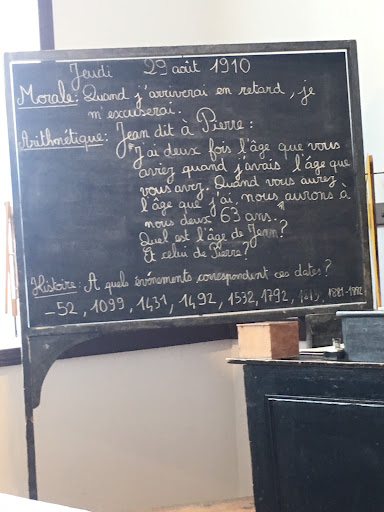 Jeudi 29 août 1910
Morale: Quand j'arriverai en retard, je
m'excuserai.
Arithmétique: Jean dit à Pierre:
"J'ai deux fois l'âge que vous
aviez quand j'avais l'âge que
vous avez. Quand vous aurez
l'âge que j'ai, nous aurons à
nous deux 63 ans."
Quel est l'âge de Jean?
Et celui de Pierre?
Histoire: A quels événements correspondent ces dates?
-52, 1099, 1431, 1492, 1532, 1792, 1881-1882